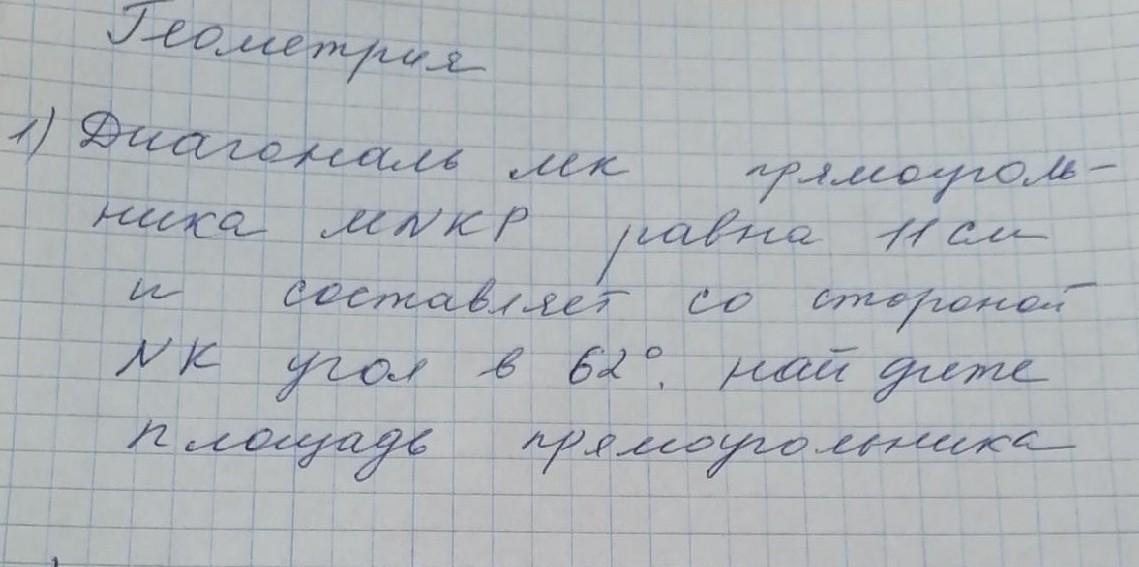 Геометрия
1) Диагональ мк прямоуголь-
ника MNKP равна 11 см
и составляет со стороной
NK угол в 62°. най дите
площадь прямоугольника